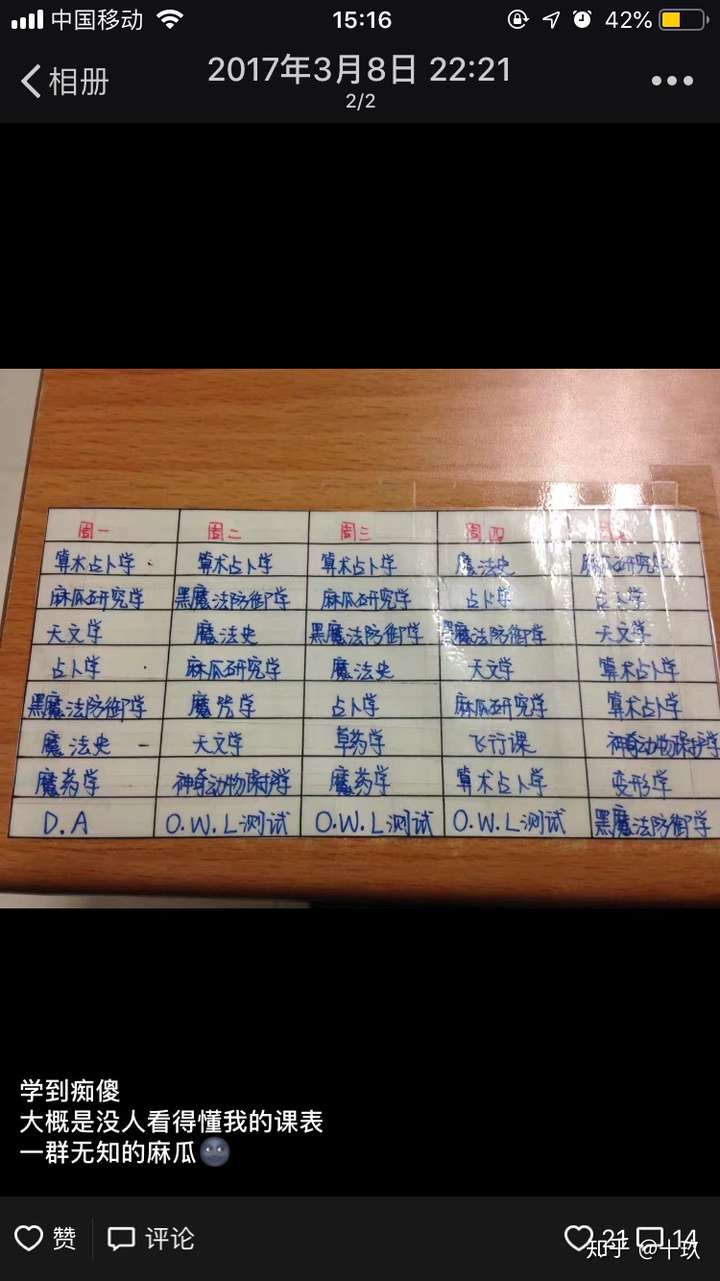 中国移动 15:16 42%
相册 2017年3月8日 22:21
2/2
周一 周二 周三 周四
算术占卜学 算术占卜学 算术占卜学 魔法史 麻瓜研究学
麻瓜研究学 黑魔法防御学 麻瓜研究学 占卜学 占卜学
天文学 魔法史 黑魔法防御学 黑魔法防御学 天文学
占卜学 麻瓜研究学 魔法史 天文学 算术占卜学
黑魔法防御学 魔咒学 占卜学 麻瓜研究学 算术占卜学
魔法史 天文学 草药学 飞行课 神奇动物保护学
魔药学 神奇动物保护学 魔药学 算术占卜学 变形学
D.A O.W.L测试 O.W.L测试 O.W.L测试 黑魔法防御学
学到痴傻
大概是没人看得懂我的课表
一群无知的麻瓜🌚
赞 评论 21 14
知乎 @十玖